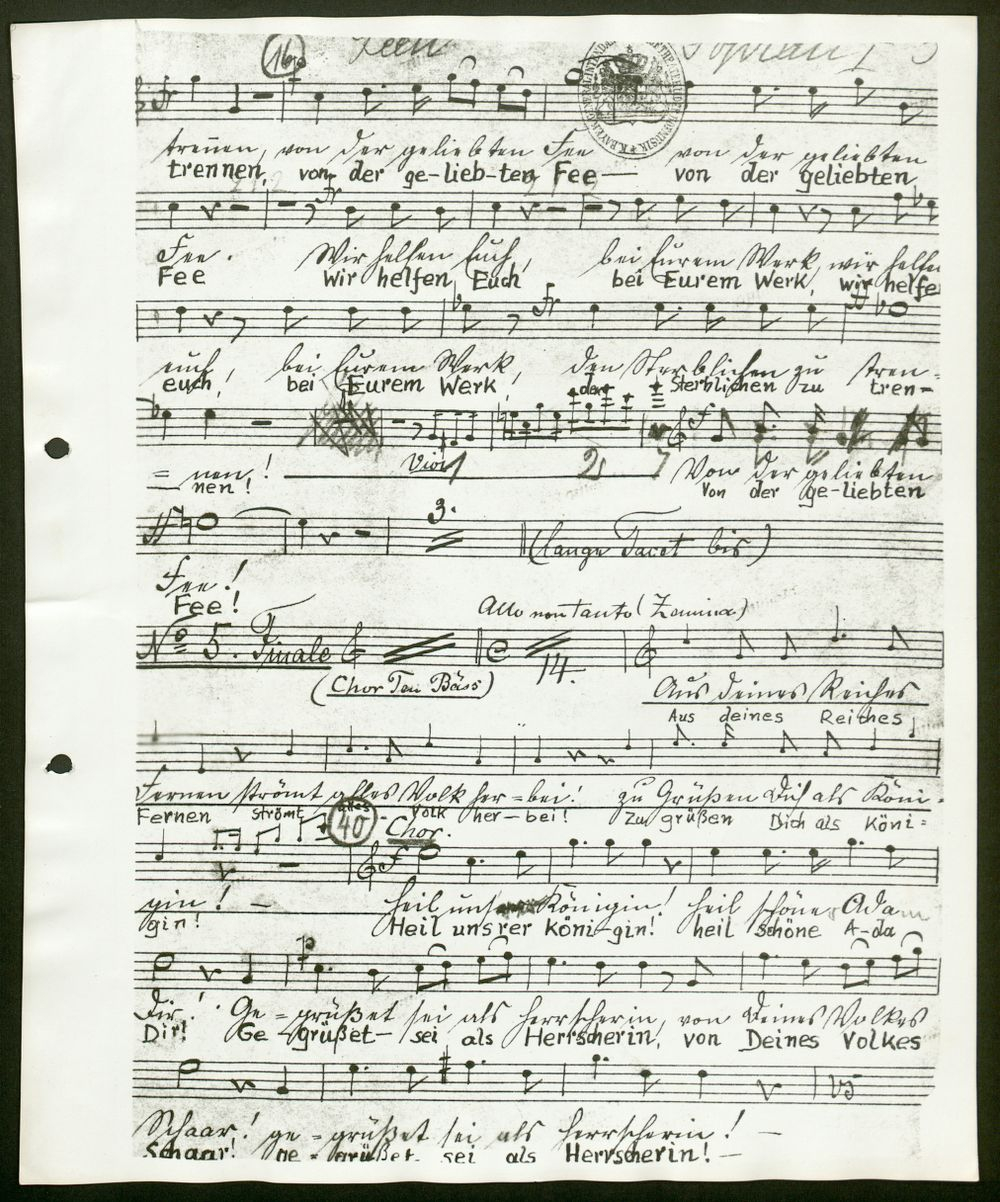 16 Feen Sopran I 3
trennen, von der geliebten Fee von der geliebten
trennen, von der ge-lieb-ten Fee— von der geliebten
Fee. Wir helfen Euch, bei Eurem Werk, wir helfen
Fee Wir helfen Euch bei Eurem Werk, wir helfe
euch, bei Eurem Werk, den Sterblichen zu tren-
euch, bei Eurem Werk, den Sterblichen zu tren-
= nen! Viol 1 2 Von der geliebten
— nen! Von der ge-liebten
3.
(lange Tacet bis)
Fee!
Fee!
Allo non tanto (Zemina)
No 5. Finale 14.
(Chor Ten Bäss) Aus deines Reiches
Aus deines Reiches
Fernen strömt alles Volk her=bei! zu Grüßen Dich als Köni-
Fernen strömt alles Volk her-bei! zu grüßen Dich als Köni=
40 Chor.
gin! — Heil unsrer Königin! Heil schöne Ada
gin! Heil uns'rer köni-gin! heil schöne A-da
Dir! Ge=grüßet sei als Herrscherin, von Deines Volkes
Dir! Ge-grüßet- sei als Herrscherin, von Deines Volkes
Schaar! ge=grüßet sei als Herrscherin! —
Schaar! ge-grüßet sei als Herrscherin! —